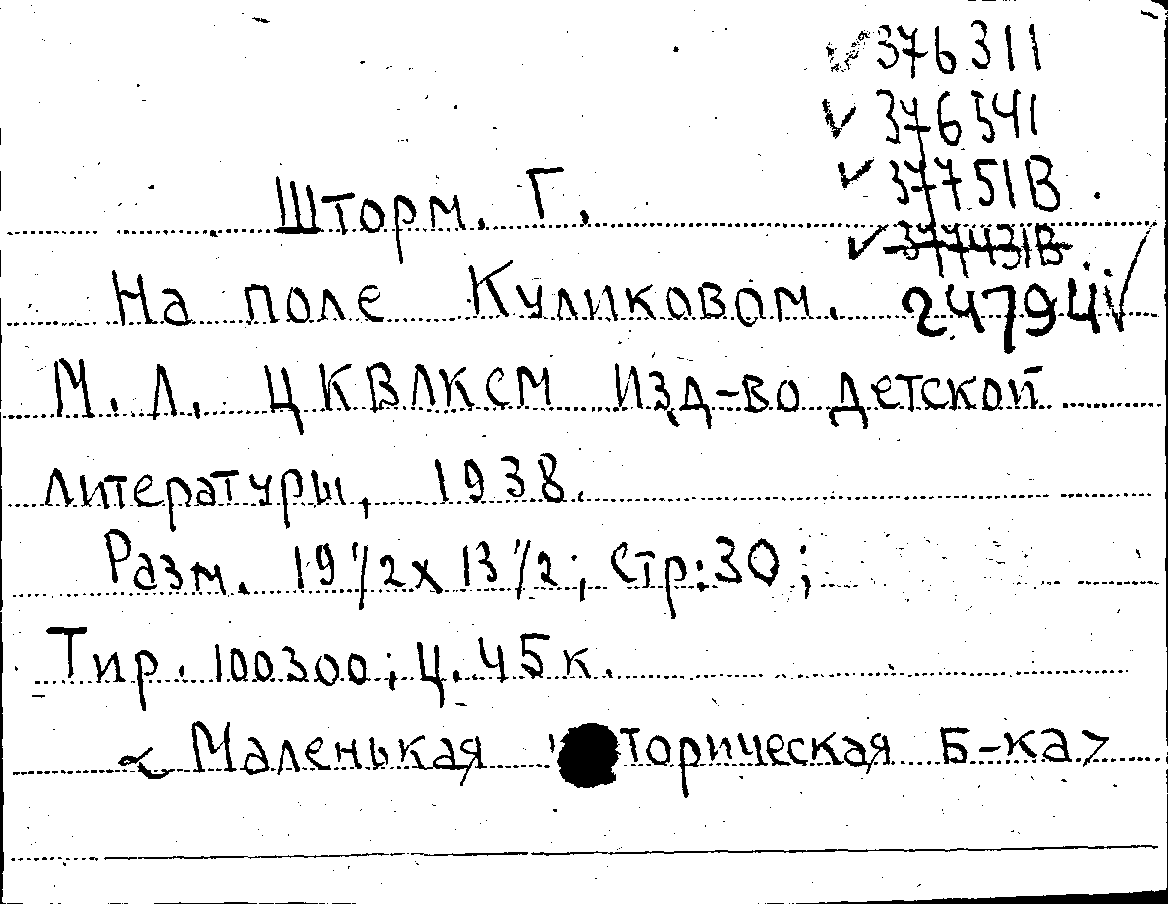 ✓376311
✓376541
✓37751В
Шторм. Г.
✓377431В
На поле Куликовом. 24794
М. Л. ЦКВЛКСМ Изд-во детской
литературы, 1938.
Разм. 19 1/2 х 13 1/2; Стр:30;
Тир. 100300; Ц. 45 к.
<Маленькая торическая Б-ка>